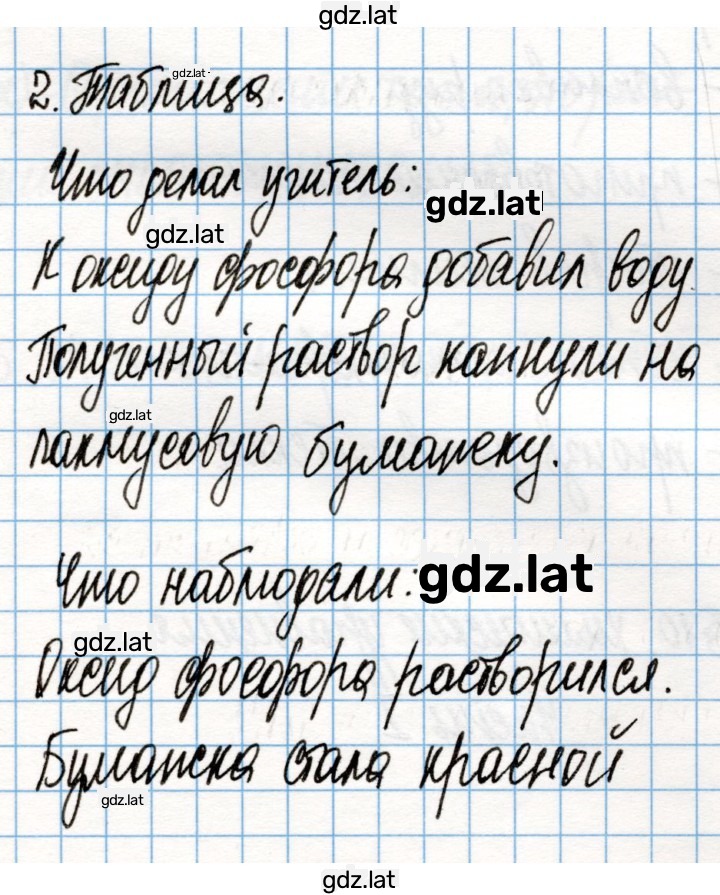 gdz.lat
gdz.lat
2. Таблица.
Что делал учитель:
gdz.lat
gdz.lat
К оксиду фосфора добавил воду.
Полученный раствор капнули на
gdz.lat
лакмусовую бумажку.
Что наблюдали:
gdz.lat
gdz.lat
Оксид фосфора растворился.
Бумажка стала красной
gdz.lat
gdz.lat